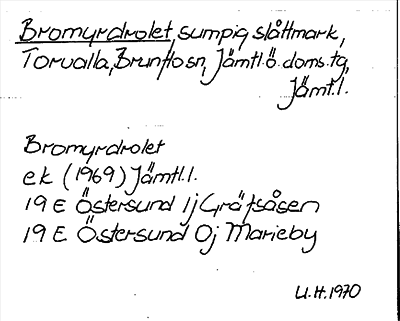 Bromyrdrolet, sumpig slåttmark,
Torvalla, Brunflo sn, Jämtl.ö.doms.tg,
Jämt.l.
Bromyrdrolet
ek (1969) Jämtl.l.
19 E Östersund 1j Gräfsåsen
19 E Östersund 0j Marieby
U.H. 1970